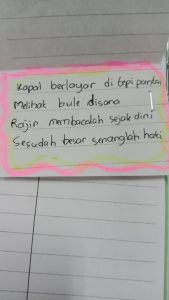 Kapal berlayar di tepi pantai
Melihat bule disana
Rajin membacalah sejak dini
Sesudah besar senanglah hati